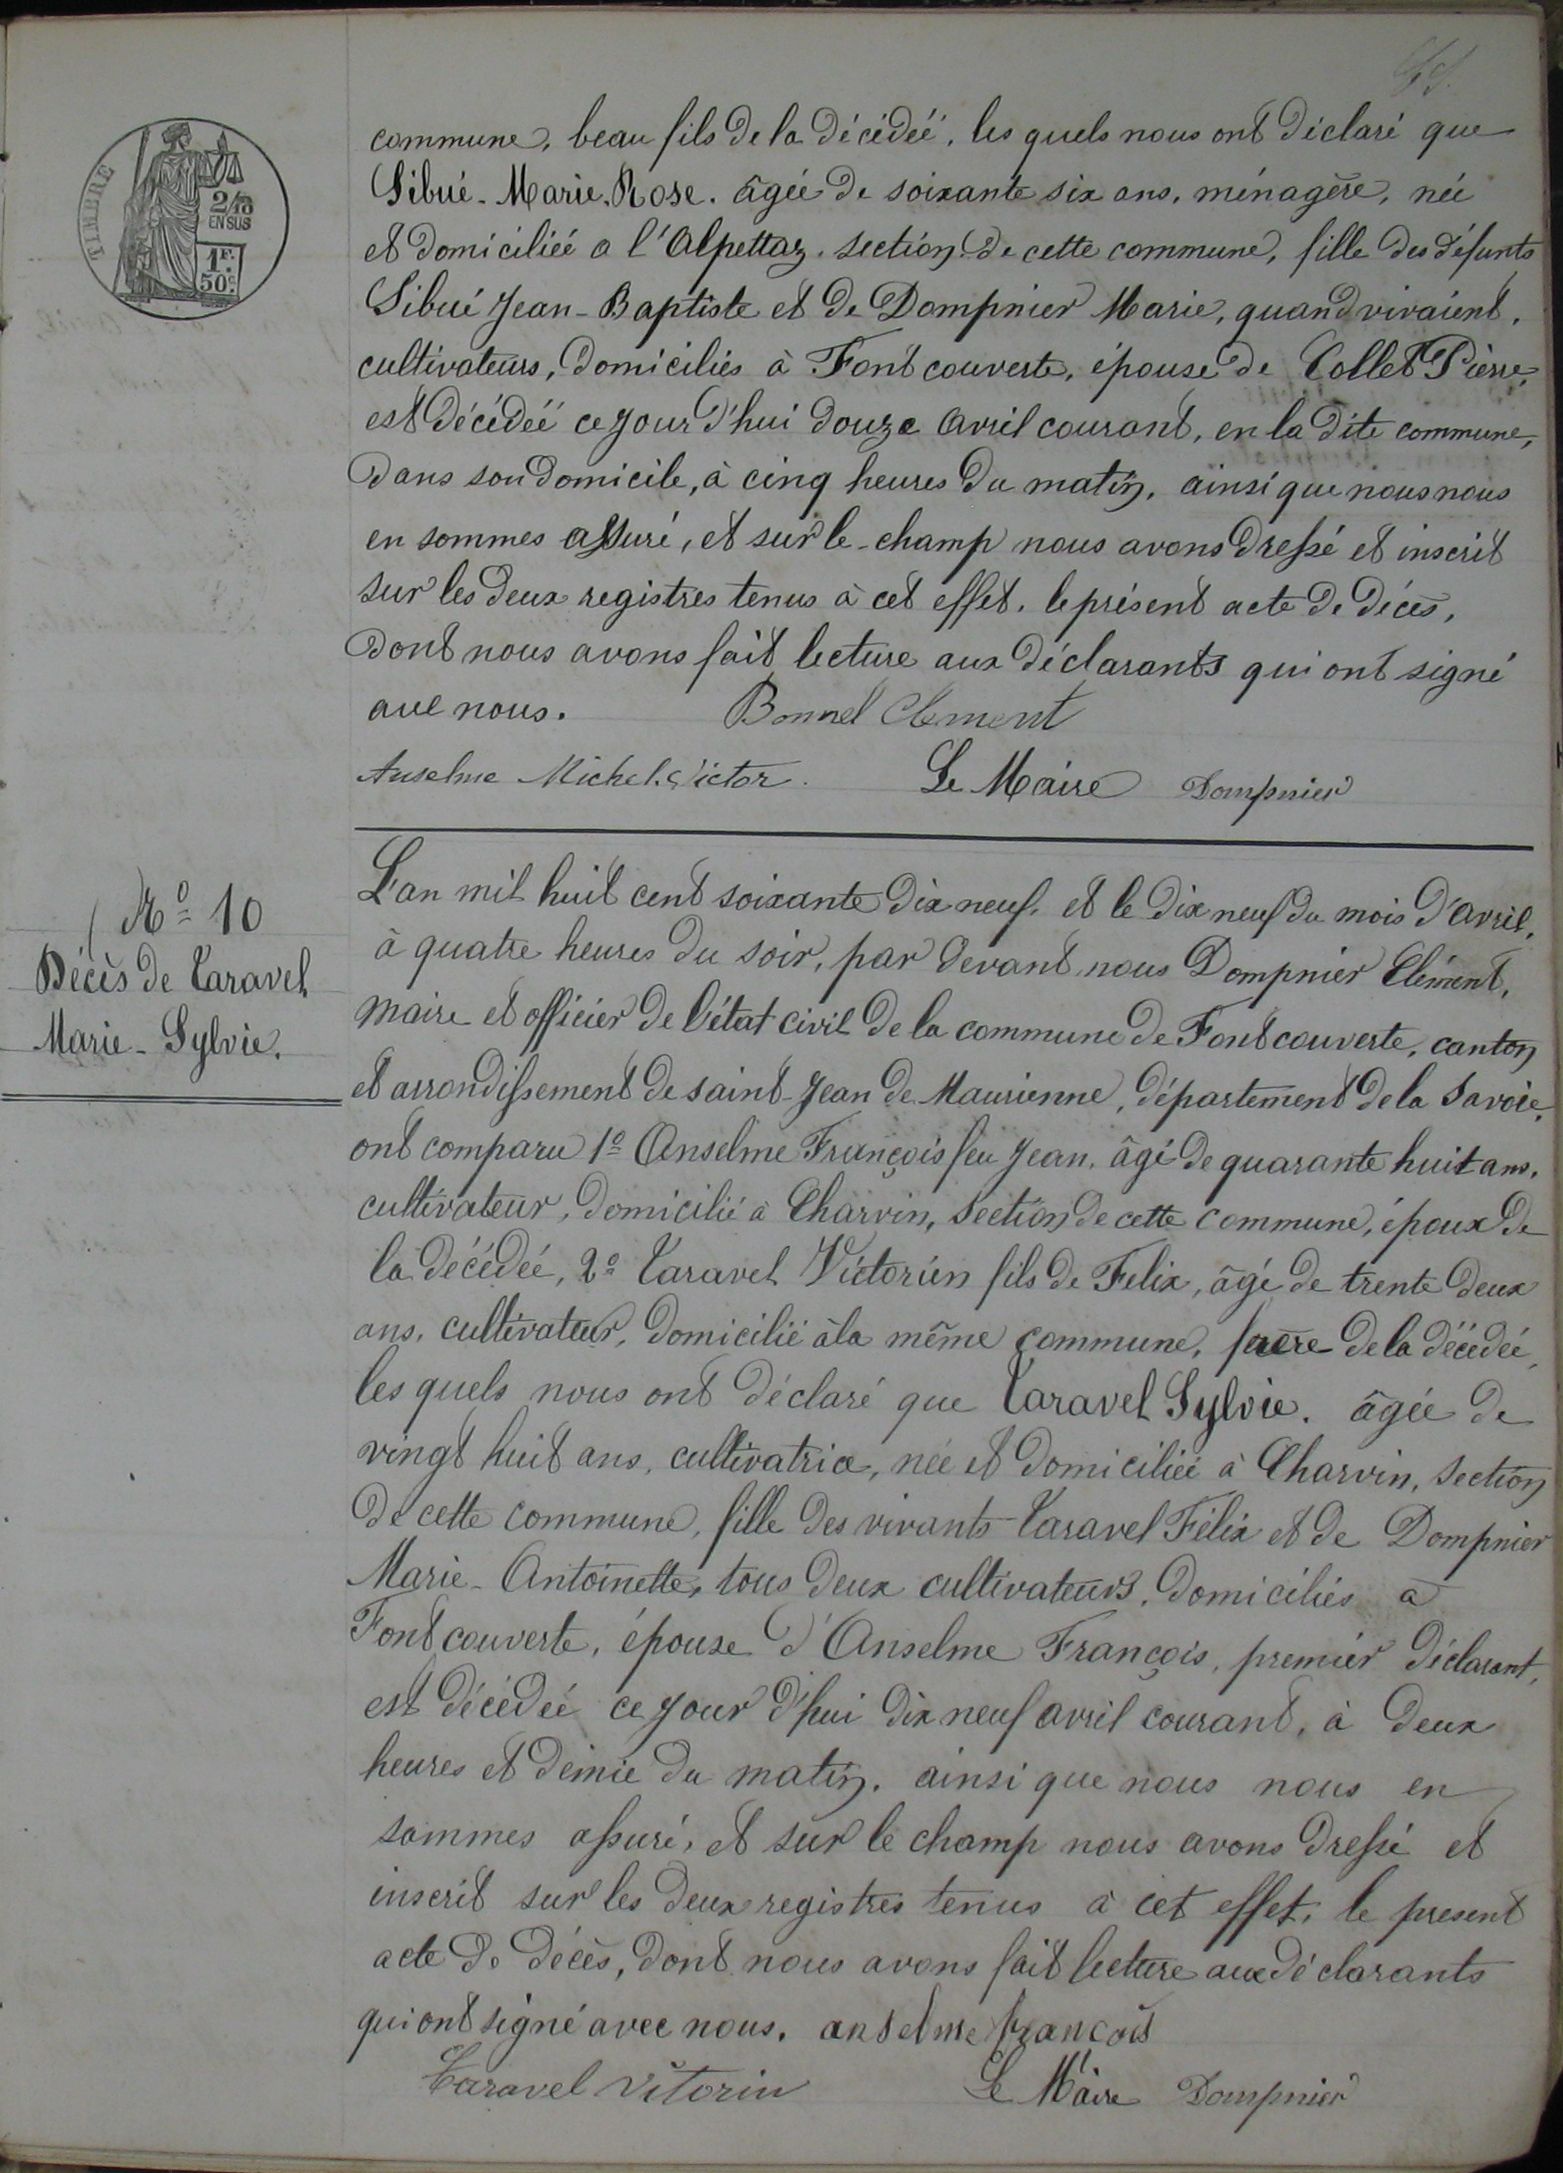 TIMBRE
2/10
EN SUS
1F.
50c.
commune, beau fils de la décédéé, les quels nous ont déclaré que
Sibué - Marie. Rose. âgée de soixante six ans, ménagère, née
et domiciliéé a l'Alpettaz. section de cette commune, fille des défunts
Sibué Jean - Baptiste et de Dompnier Marie, quand vivaient,
cultivateurs, domiciliés à Font couverte, épouse de Collet Pierre,
est décédéé ce jour d'hui douze avril courant, en la dite commune,
dans son domicile, à cinq heures du matin, ainsi que nous nous
en sommes assuré, et sur le - champ nous avons dressé et inscrit
sur les deux registres tenus à cet effet, le présent acte de décès,
dont nous avons fait lecture aux déclarants qui ont signé
avec nous. Bonnel Clement
Anselme Michel. Victor. Le Maire Dompnier
No 10
Décès de Taravel
Marie - Sylvie.
L'an mil huit cent soixante dix neuf, et le dix neuf du mois d'avril,
à quatre heures du soir, par devant nous Dompnier Clément,
maire et officier de l'état civil de la commune de Font couverte, canton
et arrondissement de saint - Jean de Maurienne, département de la Savoie,
ont comparu 1o Anselme François feu Jean, âgé de quarante huit ans,
cultivateur, domicilié à Charvin, section de cette commune, époux de
la décédéé, 2o Taravel Victorien fils de Felix, âgé de trente deux
ans, cultivateur, domicilié à la même commune, frère de la décédéé,
les quels nous ont déclaré que Taravel Sylvie. âgée de
vingt huit ans, cultivatrice, née et domiciliéé à Charvin, section
de cette commune, fille des vivants Taravel Félix et de Dompnier
Marie - Antoinette, tous deux cultivateurs, domiciliés à
Font couverte, épouse d'Anselme François, premier déclarant,
est décédéé ce jour d'hui dix neuf avril courant, à deux
heures et demie du matin, ainsi que nous nous en
sommes assuré, et sur le champ nous avons dressé et
inscrit sur les deux registres tenus à cet effet, le present
acte de décès, dont nous avons fait lecture aux déclarants
qui ont signé avec nous. anselme françois
Taravel Vitorin Le Maire Dompnier